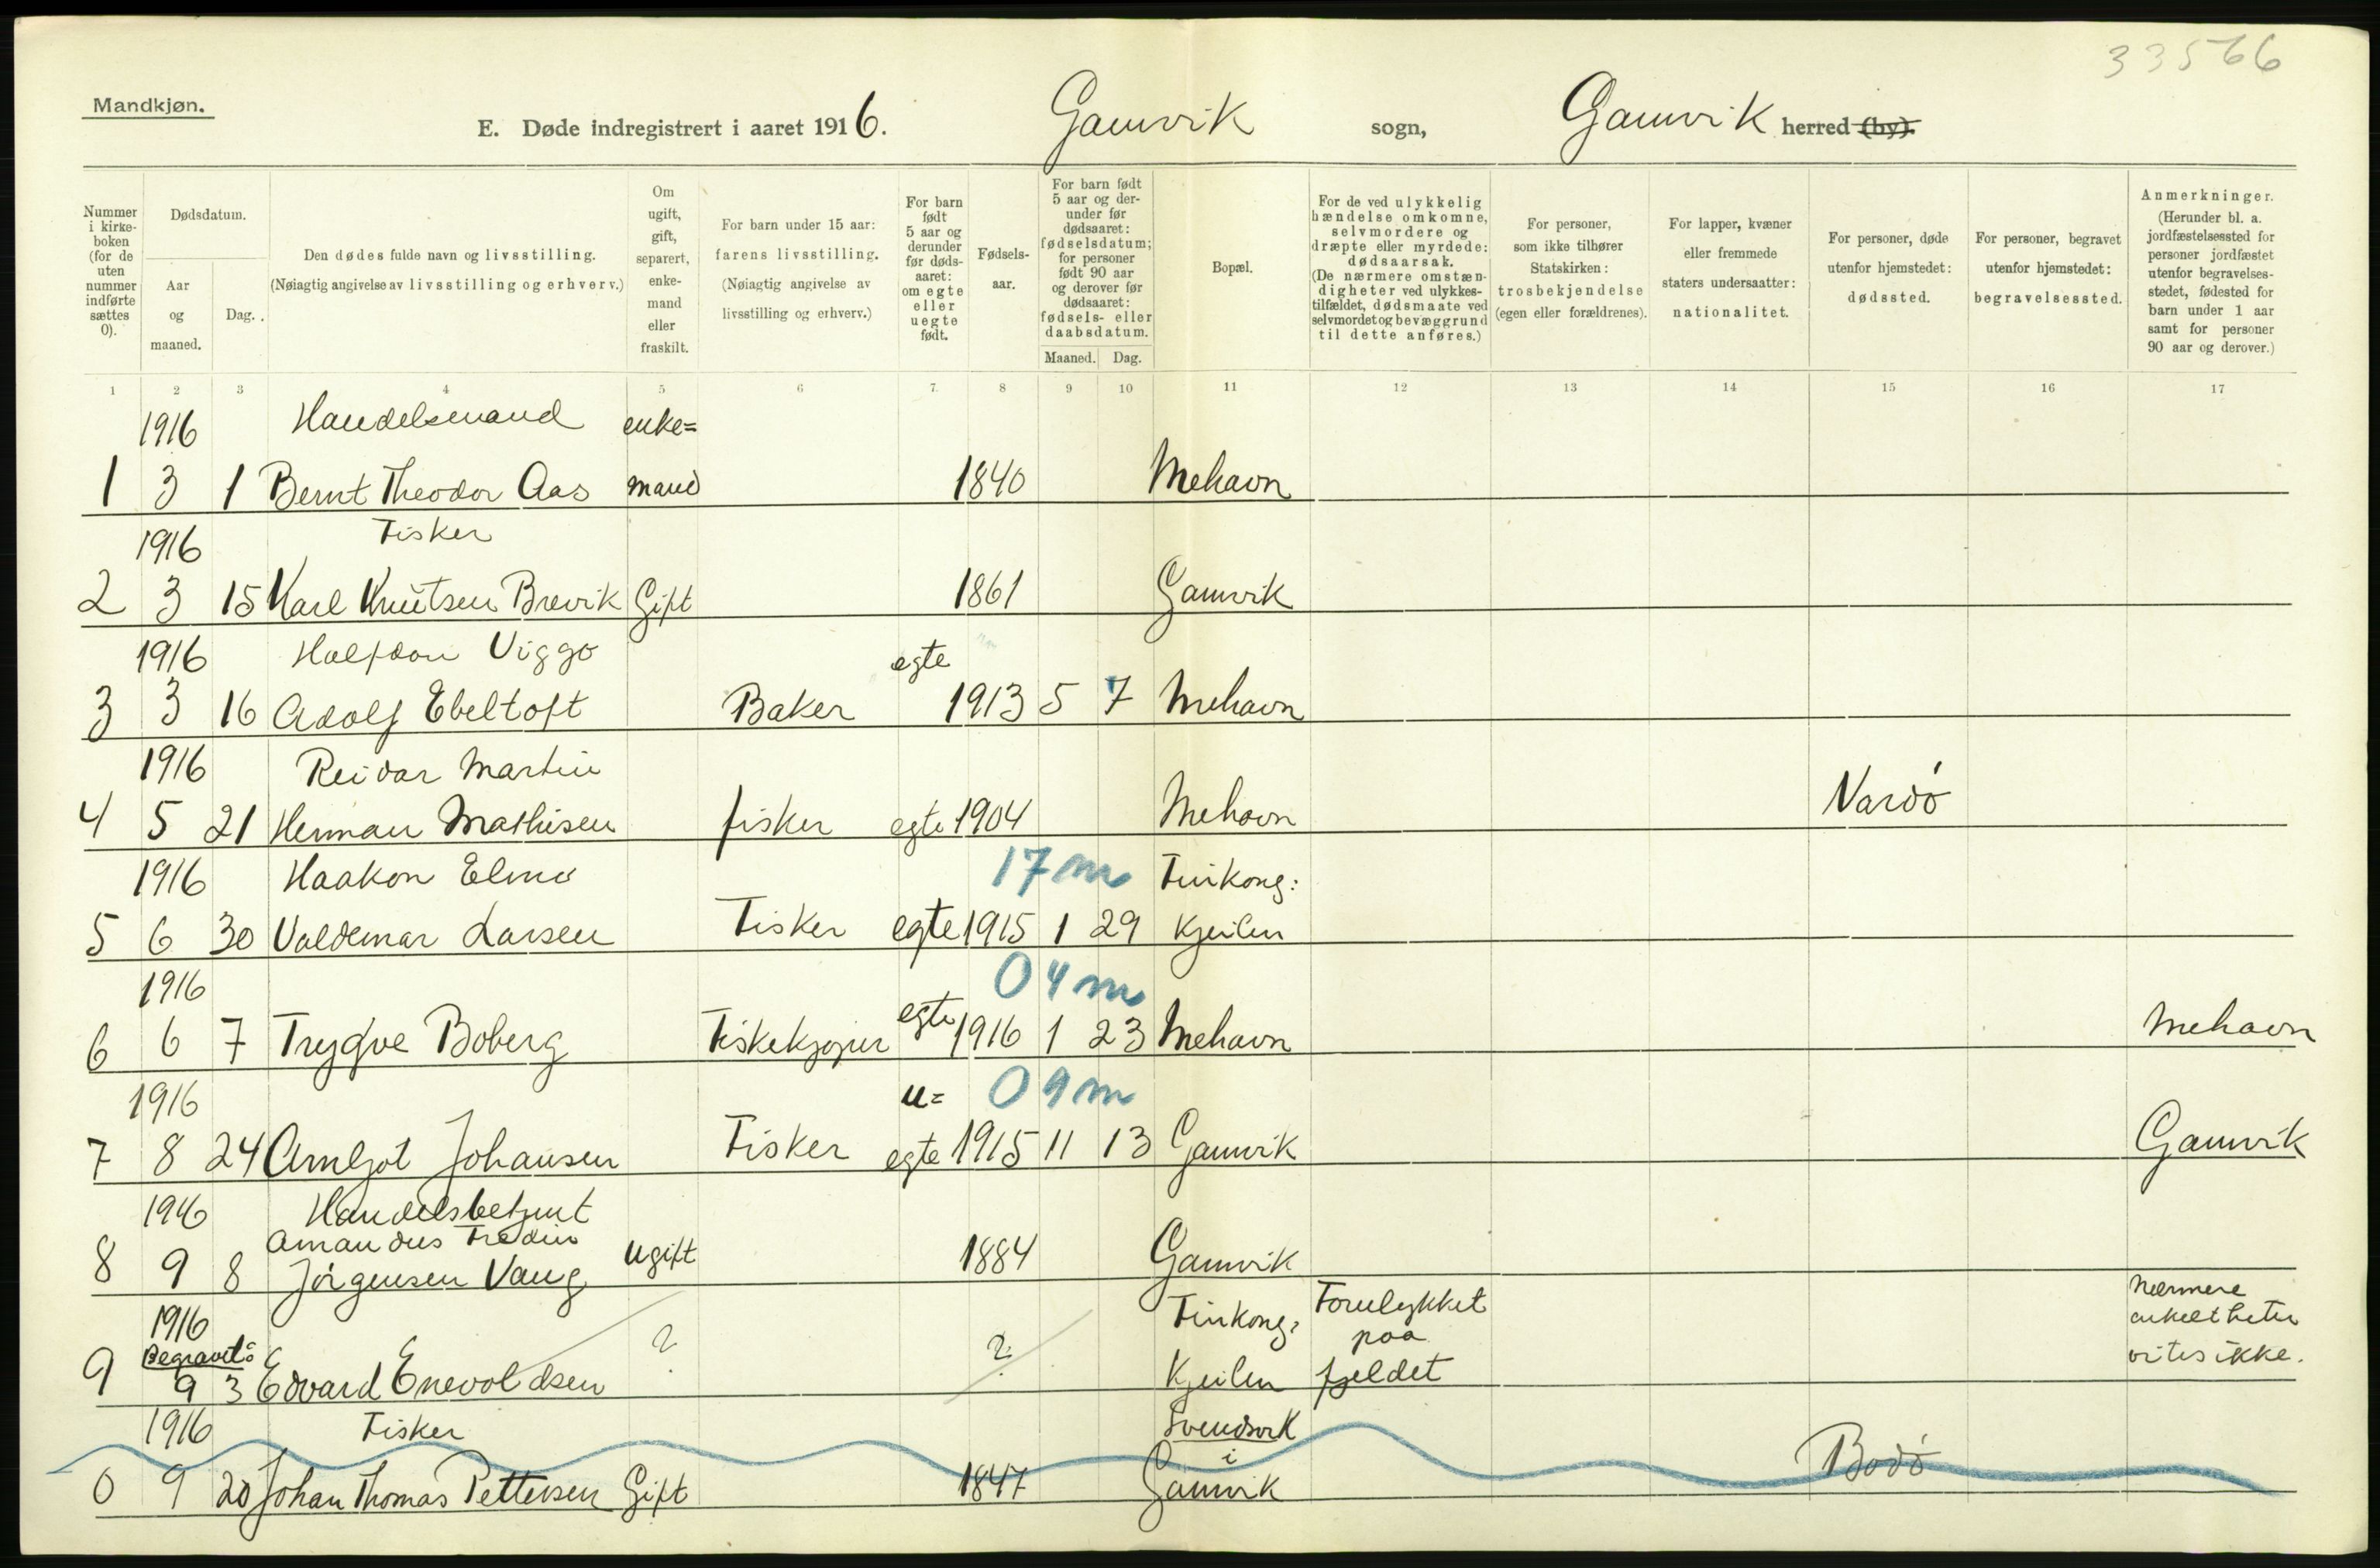 33566
Mandkjøn.
E. Døde indregistrert i aaret 1916. Gamvik sogn, Gamvik herred (by).
Nummer i kirke-boken (for de uten nummer indførte sættes 0).
Dødsdatum.
Aar og maaned.
Dag.
Den dødes fulde navn og livsstilling.
(Nøiagtig angivelse av livsstilling og erhverv.)
Om ugift, gift, separert, enke-mand eller fraskilt.
For barn under 15 aar:
farens livsstilling.
(Nøiagtig angivelse av livsstilling og erhverv.)
For barn født 5 aar og derunder før døds-aaret: om egte eller uegte født.
Fødsels-aar.
For barn født 5 aar og der-under før dødsaaret: fødselsdatum; for personer født 90 aar og derover før dødsaaret: fødsels- eller daabsdatum.
Maaned. Dag.
Bopæl.
For de ved ulykkelig hændelse omkomne, selvmordere og dræpte eller myrdede: dødsaarsak.
(De nærmere omstæn-digheter ved ulykkes-tilfældet, dødsmaate ved selvmordet og bevæggrund til dette anføres.)
For personer, som ikke tilhører Statskirken: trosbekjendelse (egen eller forældrenes).
For lapper, kvæner eller fremmede staters undersaatter: nationalitet.
For personer, døde utenfor hjemstedet: dødssted.
For personer, begravet utenfor hjemstedet: begravelsessted.
Anmerkninger.
(Herunder bl. a. jordfæstelsessted for personer jordfæstet utenfor begravelses-stedet, fødested for barn under 1 aar samt for personer 90 aar og derover.)
1 2 3 4 5 6 7. 8 9 10 11 12 13 14 15 16 17
1916 Handelsmand enke=
1 3 1 Bernt Theodor Aas mand 1840 Mehavn
1916 Fisker
2 3 15 Karl Knutsen Brevik Gift 1861 Gamvik
1916 Halfdan Viggo egte
3 3 16 Adolf Ebeltoft Baker 1913 5 7 Mehavn
1916 Reidar Martin
4 5 21 Herman Mathisen fisker egte 1904 Mehavn Vardö
1916 Haakon Elmo 17 m Finkong:
5 6 30 Valdemar Larsen Fisker egte 1915 1 29 Kjeilen
1916 04 m
6 6 7 Trygve Boberg Fiskekjøper egte 1916 1 23 Mehavn Mehavn
1916 u= 09 m
7 8 24 Arnljot Johansen Fisker egte 1915 11 13 Gamvik Gamvik
1916 Handelsbetjent
Amandus Fredin
8 9 8 Jörgensen Vang Ugift 1884 Gamvik
1916 Finkong: Forulykket Nærmere
Begravet: ? ? paa enkeltheter
9 9 3 Edvard Enevoldsen Kjeilen fjeldet vites ikke.
1916 Fisker Svendsvik
i
0 9 20 Johan Thomas Pettersen Gift 1847 Gamvik Bodö